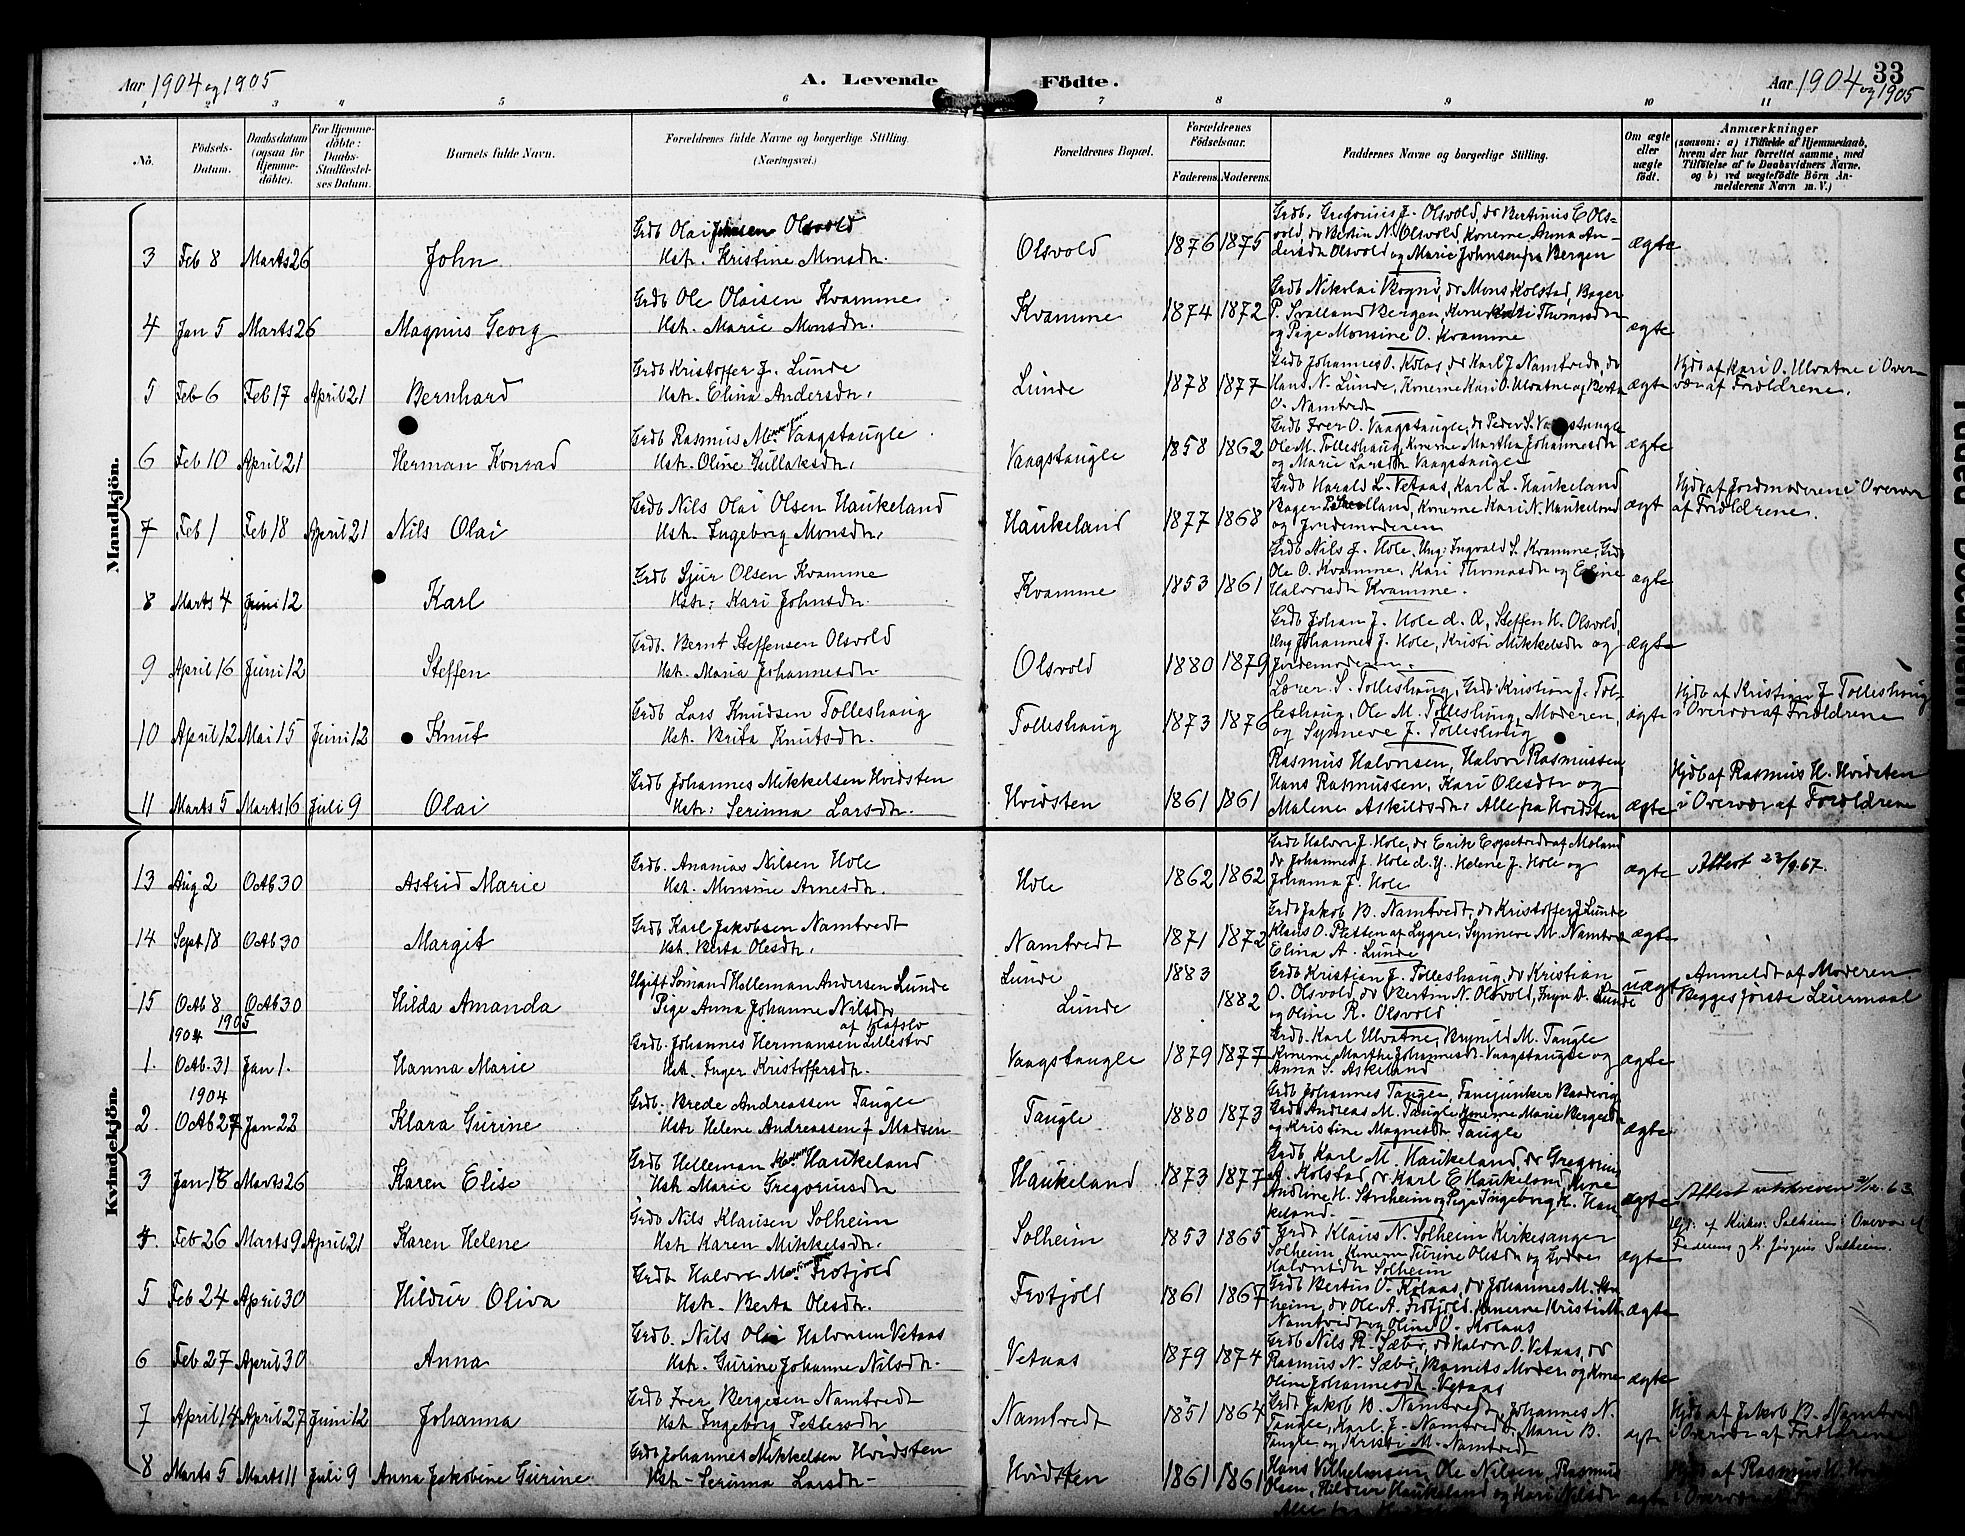 Aar 1904 og 1905
A. Levende Födte.
Aar 1904 og 1905
33
1 2 3 4 5 6 7 8 9 10 11
No.
Födsels-Datum.
Daabsdatum (ogsaa for Hjemme-döbte).
For Hjemme-döbte: Daabs-Stadfæstel-ses Datum.
Barnets fulde Navn.
Forældrenes fulde Navne og borgerlige Stilling. (Næringsvei.)
Forældrenes Bopæl.
Forældrenes Födselsaar.
Faderens Moderens
Faddernes Navne og borgerlige Stilling.
Om ægte eller uægte födt.
Anmærkninger
(saasom: a) i Tilfælde af Hjemmedaab, hvem der har forrettet samme, med Tilföielse af to Daabsvidners Navne, og b) ved uægtefödte Börn An-melderens Navn m. V.)
Mandkjön.
3 Feb 8 Marts 26 John
Grdb Olai Olsvold
Hstr. Kristine Monsdtr.
Olsvold 1876 1875
Grdb. Gregorius J. Olsvold, do Bertinus E Ols-
vold, do Bertin N. Olsvold, Konerne Anna An-
dersdtr Olsvold og Marie Johnsen fra Bergen
ægte
4 Jan 5 Marts 26 Magnus Georg
Grdb Ole Olaisen Kvamme
Hstr. Marie Monsdtr.
Kvamme 1874 1872
Grdb Nikolai Rogne, do Mons Kolstad, Bager
P. Svalland Bergen, Kone Kari Thomasdtr
og Pige Monsine O. Kvamme
ægte
5 Feb 6 Feb 17 April 21 Bernhard
Grdb Kristoffer J. Lunde
Hstr. Elina Andersdtr.
Lunde 1878 1877
Grdb Johannes O. Kolas, do Karl J Namtvedt, do
Hans N. Lunde, Konerne Kari O. Ulvatne og Berta
O. Namtvedt
ægte
Hjdb af Kari O. Ulvatne i Over-
vær af Forældrene.
6 Feb 10 April 21 Herman Konrad
Grdb Rasmus M. Vaagstaugle
Hstr. Oline Gullaksdtr.
Vaagstaugle 1858 1862
Grdb Frer O. Vaagstaugle, do Peder S. Vaagstaugle
Ole M. Tolleshaug, Konerne Martha Johannesdtr
og Marie Larsdtr Vaagstaugle
ægte
7 Feb 1 Feb 18 April 21 Nils Olai
Grdb Nils Olai Olsen Haukeland
Hstr. Ingeborg Monsdtr.
Haukeland 1877 1868
Grdb Harald L. Vetaas, Karl L. Haukeland
Bager P. Svalland, Konerne Kari N. Haukeland
og Jordemoderen
ægt
Hjdb af Jordmoderen i Overvær
af Forældrene.
8 Marts 4 Juni 12 Karl
Grdb Sjur Olsen Kvamme
Hstr: Kari Johnsdtr.
Kvamme 1853 1861
Grdb Nils J. Hole, Ung: Ingvald S. Kvamme, Grdb
Ole O. Kvamme, Kari Thomasdtr og Eline
Halvorsdtr Kvamme.
ægte
9 April 16 Juni 12 Steffen
Grdb. Bernt Steffensen Olsvold
Hstr. Maria Johannesdtr.
Olsvold 1880 1879
Grdb Johan J. Hole d. Æ, Steffen H. Olsvold,
Ung Johannes J. Hole, Kristi Mikkelsdtr og
Jordemoderen.
ægte
10 April 12 Mai 15 Juni 12 Knut
Grdb Lars Knudsen Tolleshaug
Hstr. Brita Knutsdtr.
Tolleshaug 1873 1876
Lærer S. Tolleshaug, Grdb Kristian J. Tol-
leshaug, Ole M. Tolleshaug, Moderen,
og Synneve J. Tolleshaug
ægte
Hjdb af Kristian J Tolleshaug
i Overvær af Forældrene
11 Marts 5 Marts 16 Juli 9 Olai
Grdb Johannes Mikkelsen Hvidsten
Hstr: Serinna Larsdtr.
Hvidsten 1861 1861
Rasmus Halvorsen, Halvor Rasmussen,
Hans Rasmussen, Kari Olesdtr og
Malene Askildsdtr: Alle fra Hvidsten
ægte
Hjdb af Rasmus H. Hvidsten
i Overvær af Forældrene
Kvindekjön.
13 Aug 2 Oktb 30 Astrid Marie
Grdb. Ananias Nilsen Hole
Hstr. Monsine Arnesdtr.
Hole 1862 1862
Grdb Halvor J. Hole, do Erik Espetvedt af Moland
do Johannes J. Hole d. Y. Helene J. Hole og
Johanna J. Hole
ægte
Attest 23/9.67.
14 Sept 18 Oktb 30 Margit
Grdb Karl Jakobsen Namtvedt
Hst. Berta Olesdtr.
Namtvedt 1871 1872
Grdb Jakob B. Namtvedt, do Kristoffer J Lunde
Klaus O. Pletten af Lygre, Synneve M. Namtve
Elina A. Lunde
ægte
15 Oktb 8 Oktb 30 Hilda Amanda
Ugift Sömand Helleman Andersen Lunde
Pige Anna Johanne Nilsdtr
Lunde 1883
Lunde 1882
Grdb Kristian J. Tolleshaug, do Kristian
O. Olsvold, do Bertin N. Olsvold, Inga A. Lunde
og Oline K. Olsvold
uægt
Anmeldt af Moderen
Begges förste Leiermaal
1904 1905
1. Oktb. 31 Jan 1. Hanna Marie
Grdb. Johannes Hermansen Lillestöl
Hst. Inger Kristoffersdtr.
Vaagstaugle 1879 1877
Grdb. Karl Ulvatne, Brynild M. Taugle
Konerne Marthe Johannesdtr. Vaagstaugle og
Anna S. Askeland
ægte
1904
2. Oktb 27 Jan 22 Klara Gurine
Grdb. Brede Andreassen Taugle
Hstr Helene Andreassen f Madsen
Taugle 1880 1873
Grdb Johannes Taugle, Fanejunker
Grdb Andreas M. Taugle, Konerne Marie Bergesdtr
og Kristine Magnesdtr Taugle
ægte
3 Jan 18 Marts 26 Karen Elise
Grdb Helleman Haukeland
Hstr Marie Gregoriusdtr
Haukeland 1873 1877
Grdb Karl M. Haukeland, do Gregorius
A. Kolstad, do Karl E Haukeland, Kone
Andrine H. Storheim og Pige Ingeborg H. Hau-
keland.
ægte
Attest utskreven 63
4. Feb 26 Marts 9 April 21 Karen Helene
Grdb Nils Klausen Solheim
Hstr Karen Mikkelsdtr.
Solheim 1853 1865
Grdb Klaus N. Solheim, Kirkesanger
Solheim, Konerne Gurine Olesdtr og
Halvorsdtr Solheim
ægte
Hjd. af Kirkes. Solheim i Overvær af
Faderen og K. Jörgine Solheim.
5 Feb 24 April 30 Hildur Oliva
Grdb Halvor M. Frotjold
Hstr. Berta Olesdtr.
Frotjold 1861 1867
Grdb Bertin O. Kolaas, do Johannes M.
heim, do Ole A. Frotjold, Konerne Kristi M.
Namtvedt og Oline O. Kolaas
ægte
6 Feb 27 April 30 Anna
Grdb. Nils Olai Halvorsen Vetaas
Hstr. Gurine Johanne Nilsdtr.
Vetaas 1879 1874
Grdb Nils R. Sæbö, do Halvor O. Vetaas, do
Rasmus N. Sæbö, Barnets Moder og Kone
Oline Johannesdtr Vetaas
ægte
7 April 14 April 27 Juni 12 Johanna
Grdb Frer Bergesen Namtvedt
Hstr Ingeborg Pettersdtr
Namtvedt 1851 1864
Grdb Jakob B. Namtvedt, Johannes N.
Taugle, Karl J. Namtvedt, Mari B.
Taugle og Kristi M. Namtvedt
ægte
Hjdb af Jakob B. Namtvedt
i Overvær af Forældrene
8 Marts 5 Marts 11 Juli 9 Anna Jakobine Gurine
Grdb Johannes Mikkelsen Hvidsten
Hstr. Serinna Larsdtr
Hvidsten 1861 1861
Hans Vilhelmsen, Ole Nilsen, Rasmus
Olsen, Hildur Haukeland og Kari Nilsdtr
Alle fra
ægte
Hjdb af Rasmus H.
i Overvær af